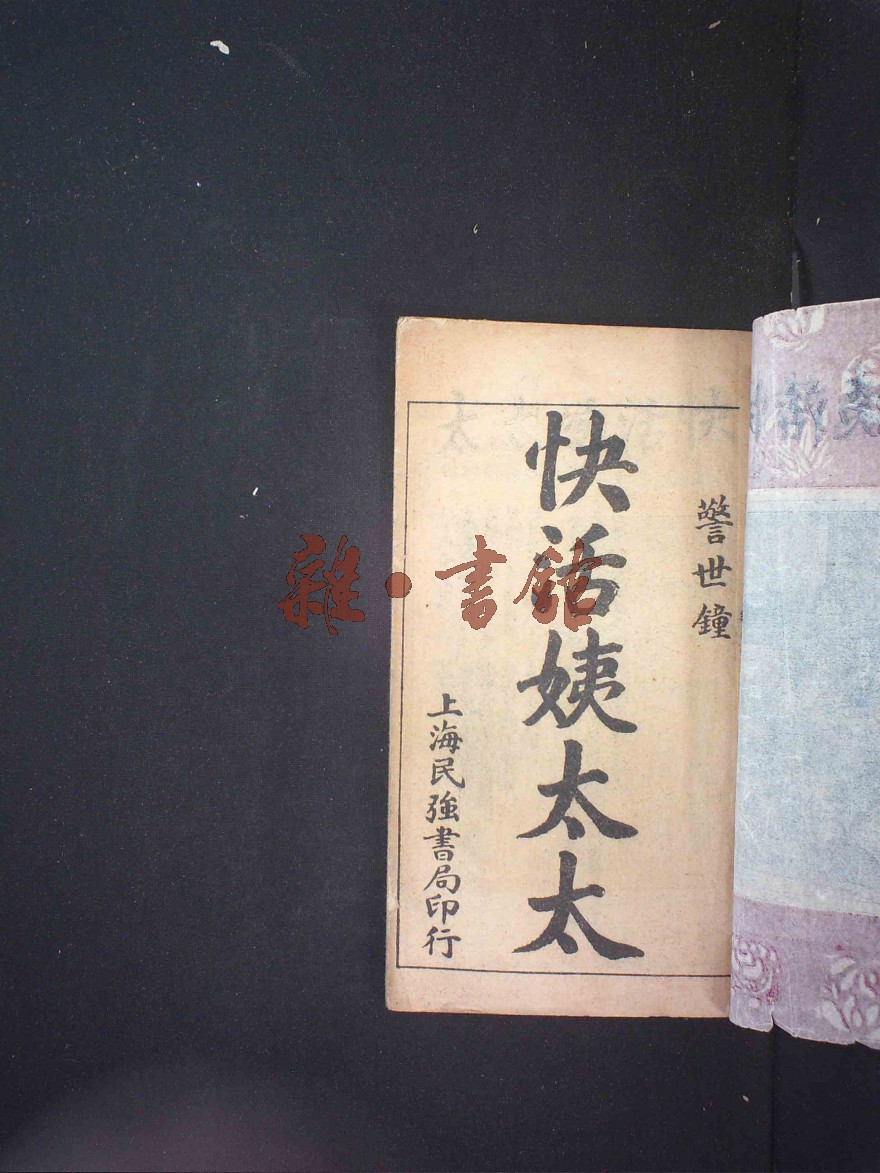 警世鐘
快活姨太太
上海民強書局印行
雜·書館